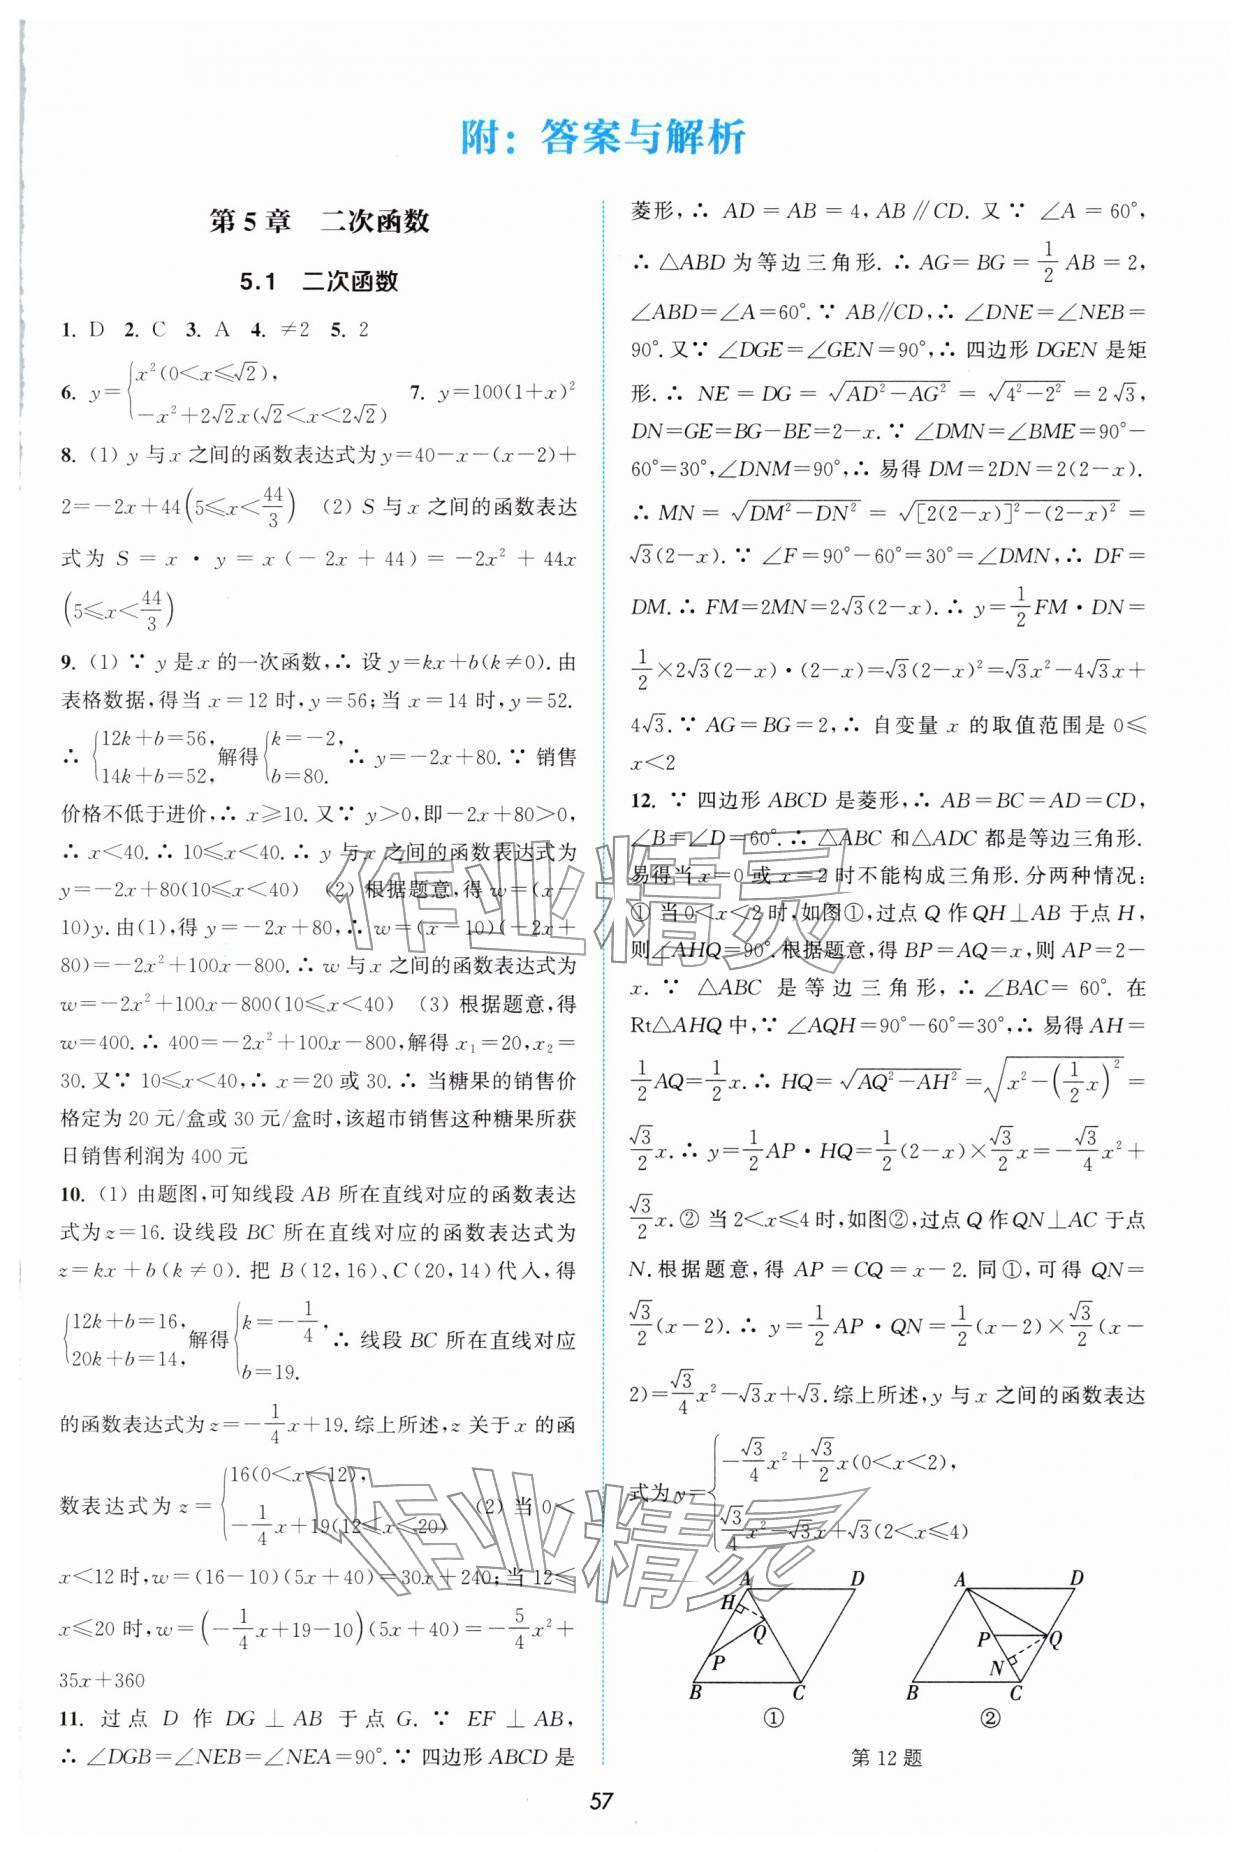 附：答案与解析
第5章　二次函数
5.1　二次函数
1. D 2. C 3. A 4. ≠2 5. 2
6. y={x²(0<x≤√2), −x²+2√2x(√2<x<2√2) 7. y=100(1+x)²
8. (1) y 与 x 之间的函数表达式为 y=40−x−(x−2)+
2=−2x+44(5≤x<44/3) (2) S 与 x 之间的函数表达
式为 S=x·y=x(−2x+44)=−2x²+44x
(5≤x<44/3)
9. (1) ∵ y 是 x 的一次函数,∴ 设 y=kx+b(k≠0).由
表格数据,得当 x=12 时,y=56;当 x=14 时,y=52.
∴ {12k+b=56, 14k+b=52, 解得{k=−2, b=80. ∴ y=−2x+80.∵ 销售
价格不低于进价,∴ x≥10.又∵ y>0,即−2x+80>0,
∴ x<40.∴ 10≤x<40.∴ y 与 x 之间的函数表达式为
y=−2x+80(10≤x<40) (2) 根据题意,得 w=(x−
10)y.由(1),得 y=−2x+80,∴ w=(x−10)(−2x+
80)=−2x²+100x−800.∴ w 与 x 之间的函数表达式为
w=−2x²+100x−800(10≤x<40) (3) 根据题意,得
w=400.∴ 400=−2x²+100x−800,解得 x₁=20,x₂=
30.又∵ 10≤x<40,∴ x=20 或 30.∴ 当糖果的销售价
格定为 20 元/盒或 30 元/盒时,该超市销售这种糖果所获
日销售利润为 400 元
10. (1) 由题图,可知线段 AB 所在直线对应的函数表达
式为 z=16.设线段 BC 所在直线对应的函数表达式为
z=kx+b(k≠0).把 B(12,16)、C(20,14)代入,得
{12k+b=16, 20k+b=14, 解得{k=−1/4, b=19. ∴ 线段 BC 所在直线对应
的函数表达式为 z=−1/4x+19.综上所述,z 关于 x 的函
数表达式为 z={16(0<x<12), −1/4x+19(12≤x≤20) (2) 当 0<
x<12 时,w=(16−10)(5x+40)=30x+240;当 12≤
x≤20 时,w=(−1/4x+19−10)(5x+40)=−5/4x²+
35x+360
11. 过点 D 作 DG⊥AB 于点 G.∵ EF⊥AB,
∴ ∠DGB=∠NEB=∠NEA=90°.∵ 四边形 ABCD 是
菱形,∴ AD=AB=4,AB∥CD.又∵ ∠A=60°,
∴ △ABD 为等边三角形.∴ AG=BG=1/2AB=2,
∠ABD=∠A=60°.∵ AB∥CD,∴ ∠DNE=∠NEB=
90°.又∵ ∠DGE=∠GEN=90°,∴ 四边形 DGEN 是矩
形.∴ NE=DG=√(AD²−AG²)=√(4²−2²)=2√3,
DN=GE=BG−BE=2−x.∵ ∠DMN=∠BME=90°−
60°=30°,∠DNM=90°,∴ 易得 DM=2DN=2(2−x).
∴ MN=√(DM²−DN²)=√([2(2−x)]²−(2−x)²)=
√3(2−x).∵ ∠F=90°−60°=30°=∠DMN,∴ DF=
DM.∴ FM=2MN=2√3(2−x).∴ y=1/2FM·DN=
1/2×2√3(2−x)·(2−x)=√3(2−x)²=√3x²−4√3x+
4√3.∵ AG=BG=2,∴ 自变量 x 的取值范围是 0≤
x<2
12. ∵ 四边形 ABCD 是菱形,∴ AB=BC=AD=CD,
∠B=∠D=60°.∴ △ABC 和△ADC 都是等边三角形.
易得当 x=0 或 x=2 时不能构成三角形.分两种情况:
① 当 0<x<2 时,如图①,过点 Q 作 QH⊥AB 于点 H,
则∠AHQ=90°.根据题意,得 BP=AQ=x,则 AP=2−
x.∵ △ABC 是等边三角形,∴ ∠BAC=60°.在
Rt△AHQ 中,∵ ∠AQH=90°−60°=30°,∴ 易得 AH=
1/2AQ=1/2x.∴ HQ=√(AQ²−AH²)=√(x²−(1/2x)²)=
√3/2x.∴ y=1/2AP·HQ=1/2(2−x)×√3/2x=−√3/4x²+
√3/2x.② 当 2<x≤4 时,如图②,过点 Q 作 QN⊥AC 于点
N.根据题意,得 AP=CQ=x−2.同①,可得 QN=
√3/2(x−2).∴ y=1/2AP·QN=1/2(x−2)×√3/2(x−
2)=√3/4x²−√3x+√3.综上所述,y 与 x 之间的函数表达
式为 y={−√3/4x²+√3/2x(0<x<2), √3/4x²−√3x+√3(2<x≤4)
A D H Q P B C
①
A D P Q N B C
②
第 12 题
57
作业精灵
作业精灵